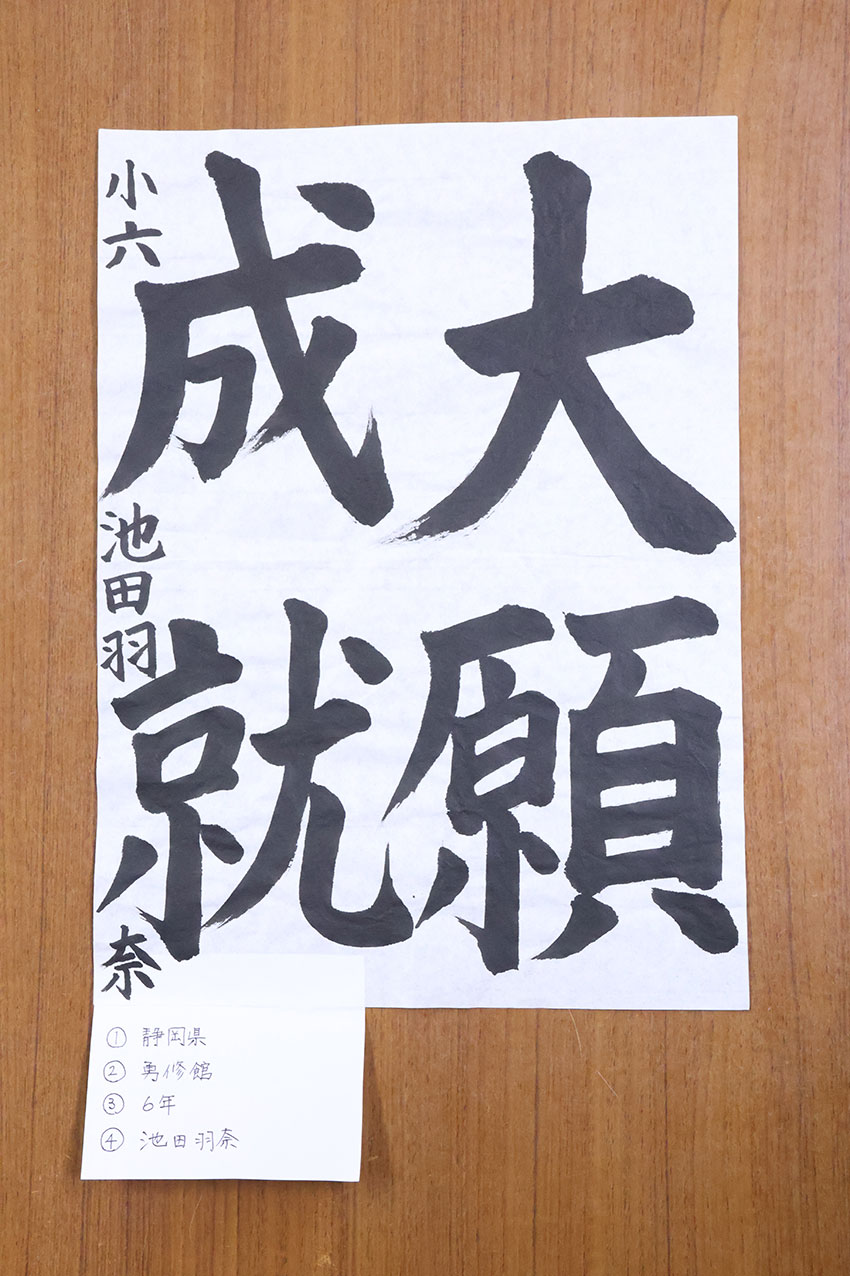 大願
成就
小六 池田羽奈
① 静岡県
② 勇修館
③ 6年
④ 池田羽奈